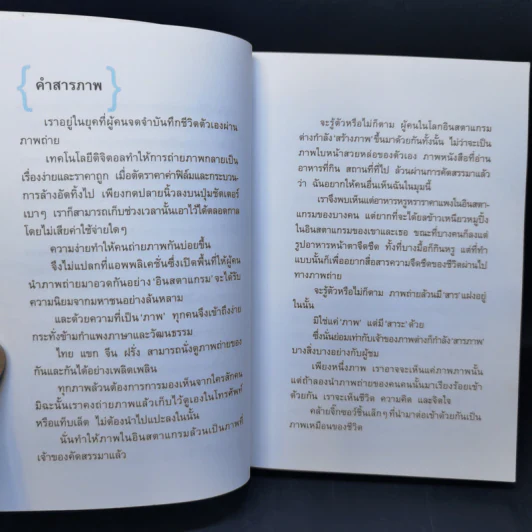 คำสารภาพ
เราอยู่ในยุคที่ผู้คนจดจำบันทึกชีวิตตัวเองผ่าน
ภาพถ่าย
เทคโนโลยีดิจิตอลทำให้การถ่ายภาพกลายเป็น
เรื่องง่ายและราคาถูก เมื่อตัดราคาค่าฟิล์มและกระบวน-
การล้างอัดทิ้งไป เพียงกดปลายนิ้วลงบนปุ่มชัตเตอร์
เบาๆ เราก็สามารถเก็บช่วงเวลานั้นเอาไว้ได้ตลอดกาล
โดยไม่เสียค่าใช้จ่ายใดๆ
ความง่ายทำให้คนถ่ายภาพกันบ่อยขึ้น
จึงไม่แปลกที่แอพพลิเคชั่นซึ่งเปิดพื้นที่ให้ผู้คน
นำภาพถ่ายมาอวดกันอย่าง 'อินสตาแกรม' จะได้รับ
ความนิยมจากมหาชนอย่างล้นหลาม
และด้วยความที่เป็น 'ภาพ' ทุกคนจึงเข้าถึงง่าย
กระทั่งข้ามกำแพงภาษาและวัฒนธรรม
ไทย แขก จีน ฝรั่ง สามารถนั่งดูภาพถ่ายของ
กันและกันได้อย่างเพลิดเพลิน
ทุกภาพล้วนต้องการการมองเห็นจากใครสักคน
มิฉะนั้นเราคงถ่ายภาพแล้วเก็บไว้ดูเองในโทรศัพท์
หรือแท็บเล็ต ไม่ต้องนำไปแปะลงในนั้น
นั่นทำให้ภาพในอินสตาแกรมล้วนเป็นภาพที่
เจ้าของคัดสรรมาแล้ว
จะรู้ตัวหรือไม่ก็ตาม ผู้คนในโลกอินสตาแกรม
ต่างกำลัง 'สร้างภาพ' ขึ้นมาด้วยกันทั้งนั้น ไม่ว่าจะเป็น
ภาพใบหน้าสวยหล่อของตัวเอง ภาพหนังสือที่อ่าน
อาหารที่กิน สถานที่ที่ไป ล้วนผ่านการคัดสรรมาแล้ว
ว่า ฉันอยากให้คนอื่นเห็นฉันในมุมนี้
เราจึงพบเห็นแต่อาหารหรูหราราคาแพงในอินสตา-
แกรมของบางคน แต่ยากที่จะได้ยลข้าวเหนียวหมูปิ้ง
ในอินสตาแกรมของเขาและเธอ ขณะที่บางคนก็ลงแต่
รูปอาหารหน้าตาจืดชืด ทั้งที่บางมื้อก็กินหรู แต่ที่ทำ
แบบนั้นก็เพื่ออยากสื่อสารความจืดชืดของชีวิตผ่านไป
ทางภาพถ่าย
จะรู้ตัวหรือไม่ก็ตาม ภาพถ่ายล้วนมี 'สาร' แฝงอยู่
ในนั้น
มิใช่แค่ 'ภาพ' แต่มี 'สาระ' ด้วย
ซึ่งนั่นย่อมเท่ากับเจ้าของภาพต่างก็กำลัง 'สารภาพ'
บางสิ่งบางอย่างกับผู้ชม
เพียงหนึ่งภาพ เราอาจจะเห็นแค่ภาพภาพนั้น
แต่ถ้าลองนำภาพถ่ายของคนคนนั้นมาเรียงร้อยเข้า
ด้วยกัน เราจะเห็นชีวิต ความคิด และจิตใจ
คล้ายจิ๊กซอว์ชิ้นเล็กๆ ที่นำมาต่อเข้าด้วยกันเป็น
ภาพเหมือนของชีวิต